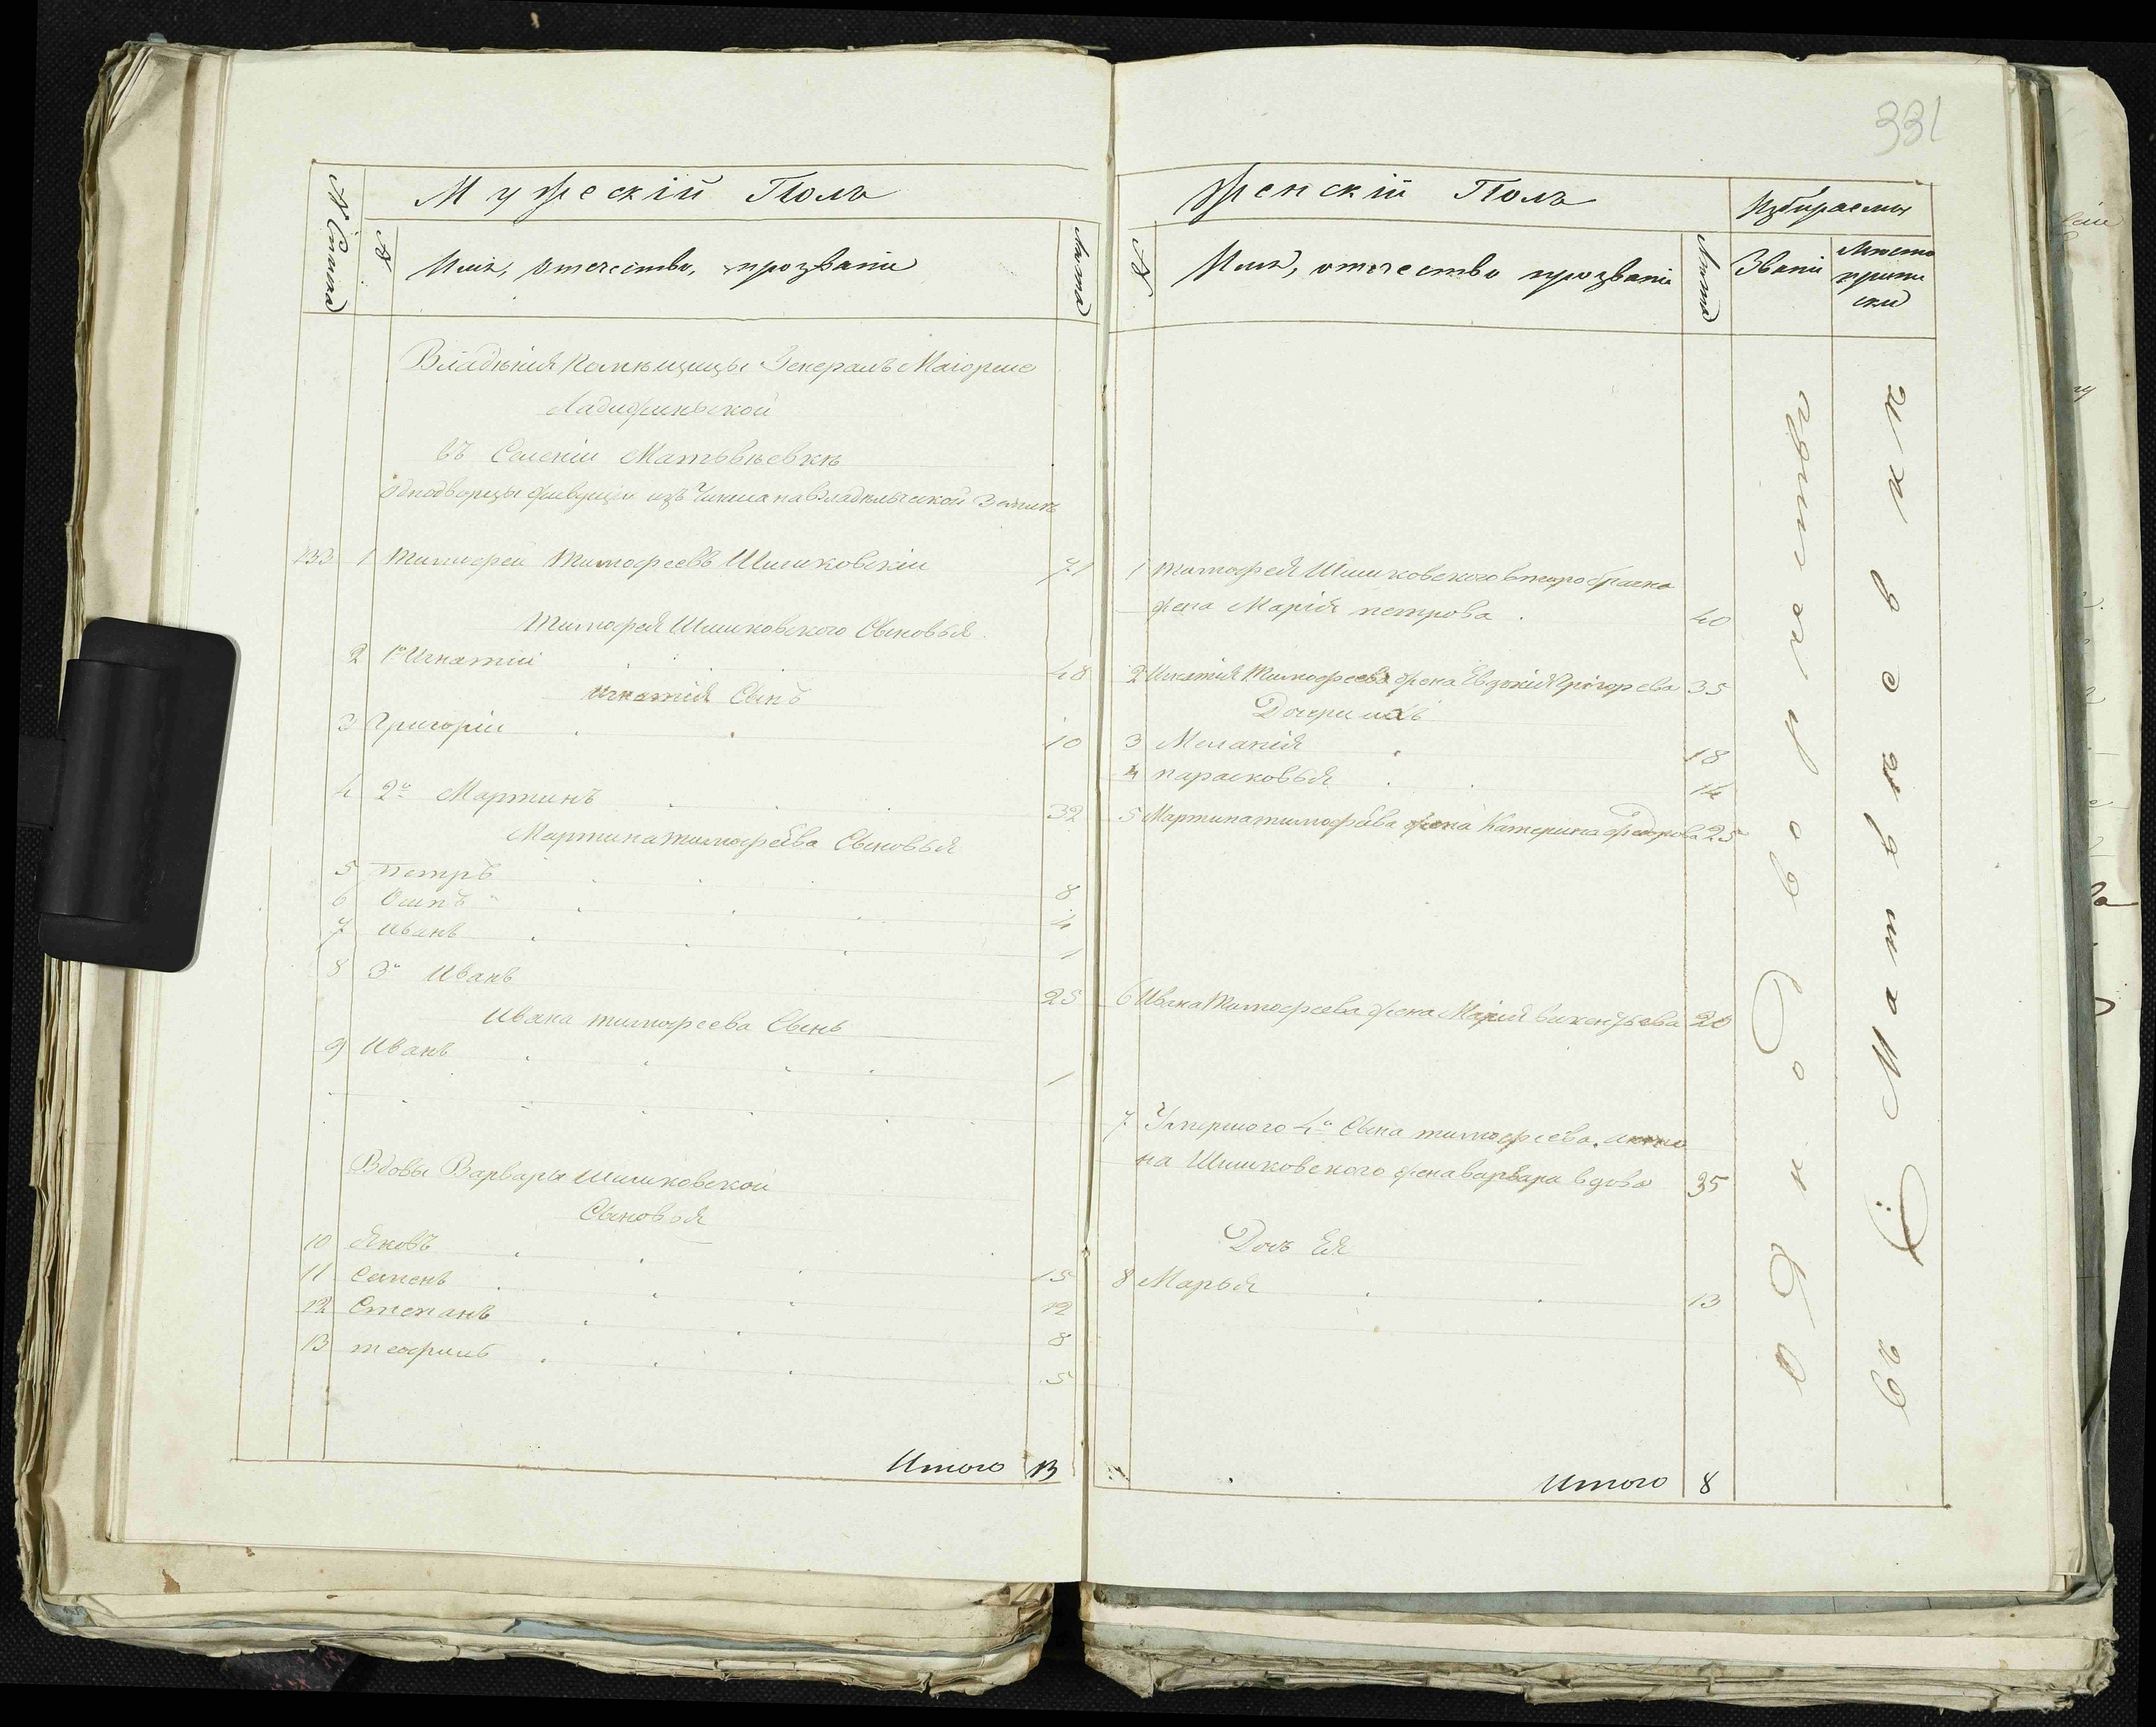 331
Мужескій Полъ
№ Списка
№
Имя, Отечество, прозваніе
Лѣта
Владѣнія Помѣщицы Генералъ Маіорше
Ладыжинской
въ Селеніи Матьвѣевкѣ
Однодворцы живущіи изъ Чинша на владѣльческой Земли
133 1 Тимофей Тимофеевъ Шишковскій 71
Тимофея Шишковского Сыновья
2 1й Игнатій 48
Игнатія Сынъ
3 Григорій 10
4 2й Мартинъ 32
Мартина тимофеева Сыновья
5 Петръ 8
6 Осипъ 4
7 Иванъ 1
8 3й Иванъ 25
Ивана тимофеева Сынъ
9 Иванъ 1
Вдовы Варвары Шишковской
Сыновья
10 Яковъ 15
11 Семенъ 12
12 Степанъ 8
13 теофилъ 5
Итого 13
Женскій Полъ
№
Имя, отечество прозваніе
Лѣта
Избираемы
Званіе
Место
приписки
1 тимофея Шишковского второбрачна
жена Марія петрова 40
2 Игнатія Тимофеева жена Евдокія Григорева 35
Дочери ихъ
3 Меланія 18
4 парасковья 14
5 Мартина тимофеева жена Катерина федорова 25
6 Ивана Тимофеева жена Марія викентьева 20
7 Умершого 4го Сына тимофеева. анто
на Шишковского жена варвара вдова 35
Дочь Ея
8 Марья 13
Итого 8
Однодворчество
въ С Матвѣевки